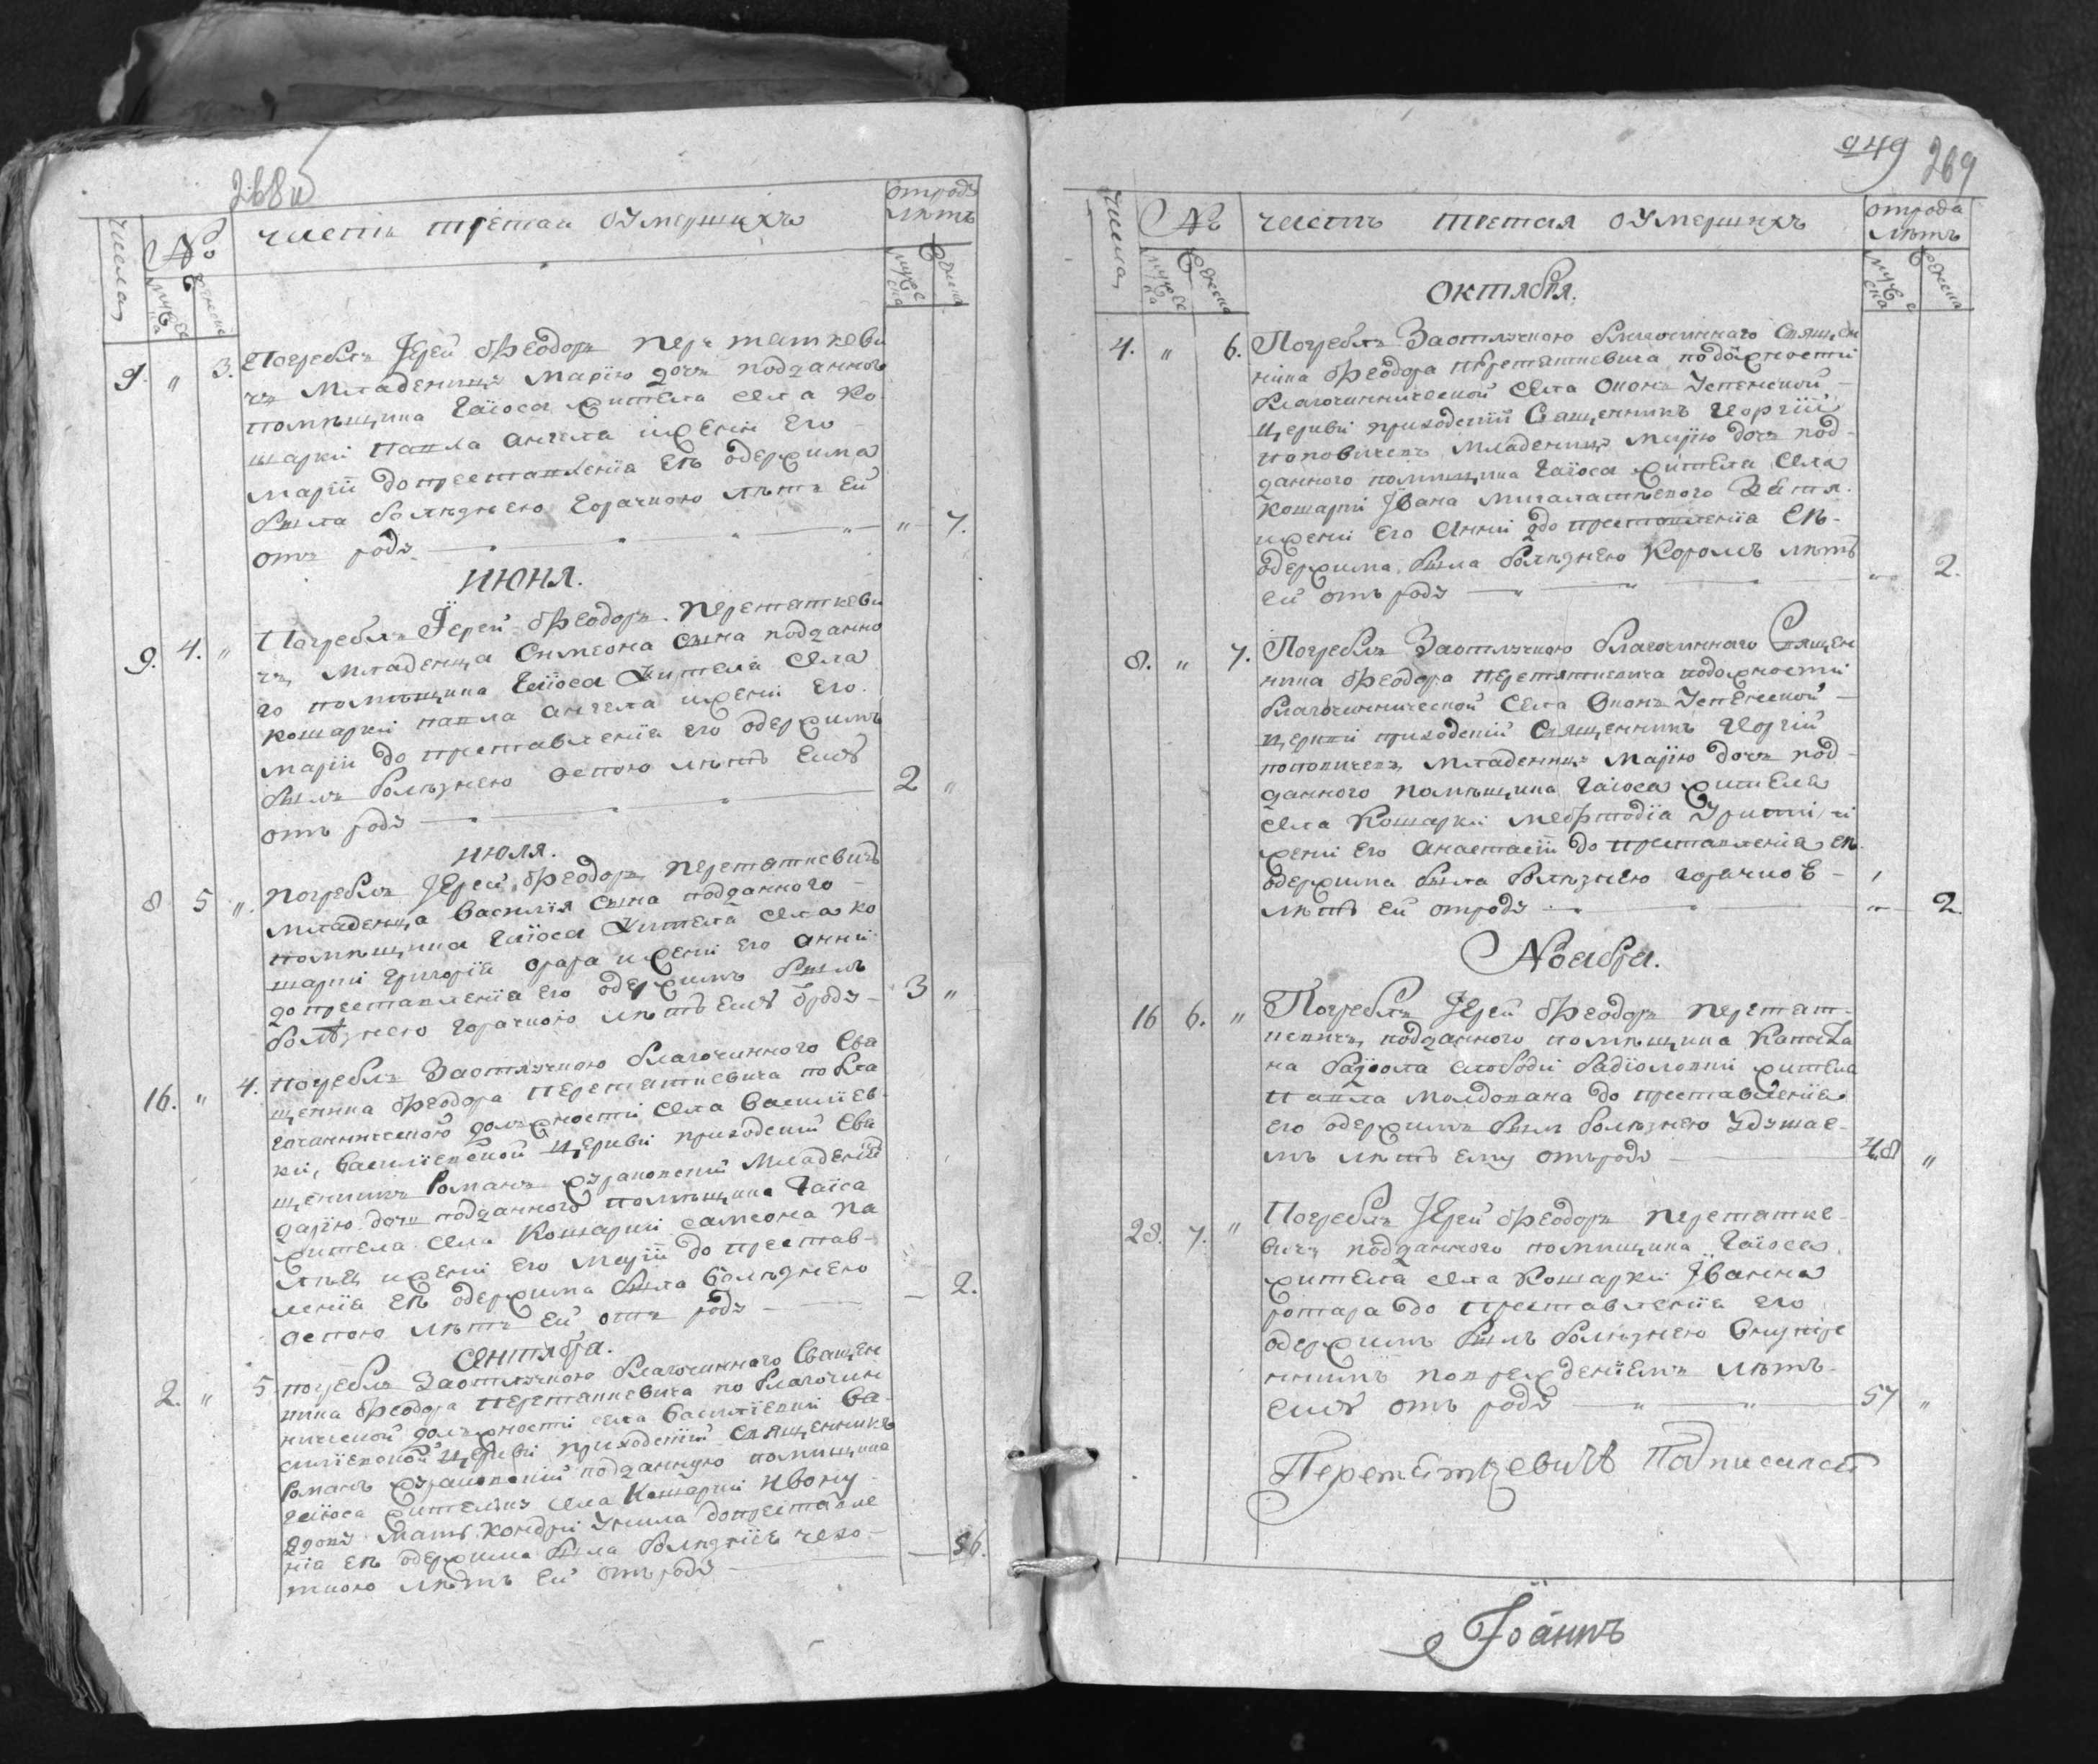 268
числа № часть третая о умершихъ отродȣ лѣтъ
мужеска женска мужеска женска
9. " 3. Погребль Іерей Феодоръ Перетаткеви
чъ младеницȣ Марїю дочь подданного
помѣщика Гаїоса жителя села Ко
шаркы Павла Ангела и жени Его
Марїи до преставленїя Еѣ одержима
была болѣзнею Горачкою лѣтъ Ей
отъ родȣ " 7.
Июня.
9. 4. " Погребль Іерей Феодоръ Перетаткеви
чъ, младенца Симеона сына подданно
го помѣщика Гаїоса жителя села
Кошаркы Павла Ангела и жени Его
Марїи до преставленїя его одержимъ
былъ болѣзнею оспою лѣтъ Емȣ
отъ родȣ 2 "
Июля.
8 5 " Погребль Іерей Феодоръ Перетаткевичъ
младенца Василїя сына подданного
помѣщика Гаїоса жителя села Ко
шаркы Григорїя Орара и жени Его Анни
до преставленїя Его одержимъ былъ
болѣзнею горачкою лѣтъ Емȣ ѿродȣ 3 "
16. " 4. Погребль Заотлȣчкою благочинного Свя
щеника Феодора Перетаткевича по бла
гочинническою должности села Василїев
ки, Василїевской Церкви приходскїй Свя
щеникъ Романъ младеницȣ
Дарїю дочь подданного помѣщика Гаїоса
жителя села Кошаркы Самсона Па
и жени его Марїи до престав-
ленїя Еѣ одержима была болѣзнею
оспою лѣтъ Ей отъ родȣ — 2.
Сентября.
2. " 5 Погребль Заотлȣчкою благочинного Священ
ника Феодора Перетаткевича по благочин
нической должности села Василїевки Ва-
силїевской Церкви приходскїй Священникъ
Романъ подданную помѣщика
Гаїоса жителькȣ села Кошаркы Ивонȣ
вдовȣ мать Кондри Унила до преставле
нїя Еѣ одержима была болѣзнїю чехо-
ткою лѣтъ Ей отъродȣ — 56.
949 269
числа № часть третая о умершихъ отрода лѣтъ
мужеска женска мужеска женска
Октября.
4. " 6. Погребль Заотлȣчкою благочинного Священ
ника Феодора Перетаткевича по должности
благочиннической села Оконъ Успенской
Церкви приходскїй Священникъ Георгїй
Поповичевъ младеницȣ Марїю дочь под-
данного помѣщика Гаїоса жителя села
Кошаркы Ївана Зятя
и жени Его Анни до преставленїя Еѣ-
одержима была болѣзнею Коромъ лѣтъ
ей отъ родȣ " 2.
8. " 7. Погребль Заотлȣчкою благочинного Священ
ника Феодора Перетаткевича по должности
благочиннической села Оконъ Успенской
Церкви приходскїй Священникъ Георгїй
Поповичевъ младеницȣ Марїю дочь под-
данного помѣщика Гаїоса жителя
села Кошаркы Мефтодїа и
жени его Анастасїи до преставленїя Еѣ
одержима была болѣзнею горачкоЕ -
лѣтъ Ей отродȣ " 2.
Ноября.
16 6. " Погребль Іерей Феодоръ Перетат-
кевичъ, подданного помѣщика Капита
на слободи жителя
Павла Молдована до преставленїя
его одержимъ былъ болѣзнею Удушае-
мъ лѣтъ ему отъродȣ 48 "
28. 7. " Погребль Іерей Феодоръ Перетатке
вичъ подданного помѣщика Гаїоса
жителя села Кошаркы Іванна
Ротара до преставленїя его
одержимъ былъ болѣзнею Внȣтре
ннимъ поврежденїемъ лѣтъ
Емȣ отъ родȣ 57 "
Перетяткевичъ Подписался
Іоаннъ